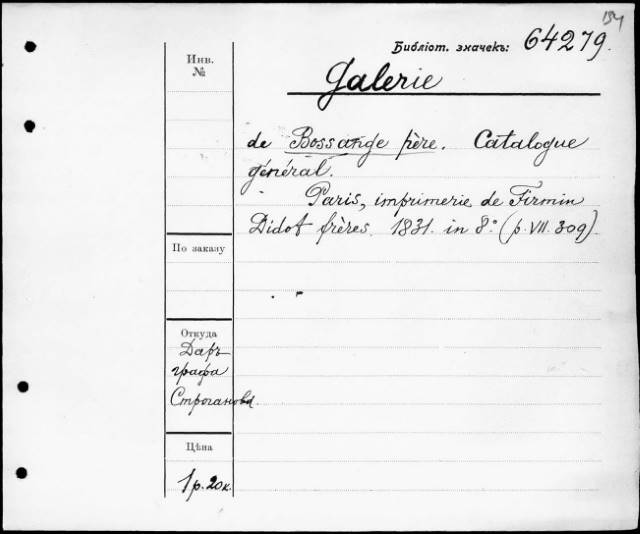 154
Библіот. значекъ: 64279.
Инв.
№
Galerie
de Bossange père. Catalogue
général.
Paris, imprimerie de Firmin
Didot frères. 1831. in 8° (p. VII. 309)
По заказу
Откуда
Даръ
графа
Строганова.
Цѣна
1 р. 20 к.